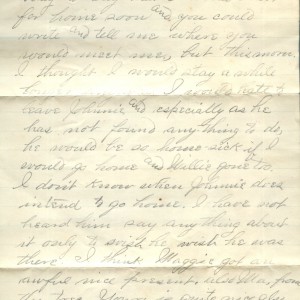 for home soon and you could
write and tell me where you
would meet me, but this morn.
I thought I would stay a while
I would hate to
leave Johnnie and especially as he
has not found anything to do,
he would be so home-sick if I
would go home and Willie gone too.
I don't know when Johnnie does
intend to go home. I have not
heard him say anything about
it only to wish he was
there. I think Maggie got an
awful nice present, also Ma, from
the tree.